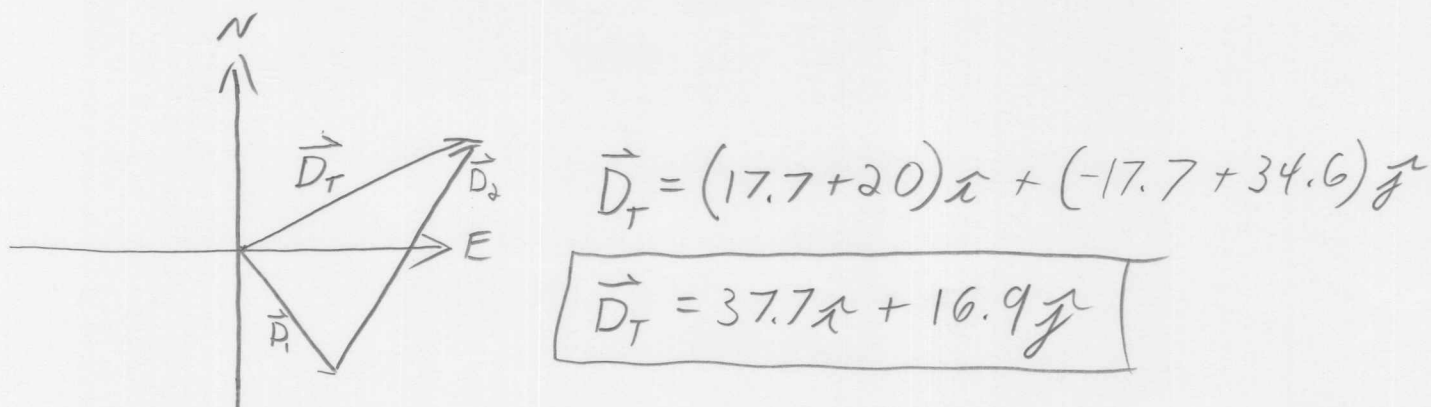 N
D⃗_T
D⃗_2
E
D⃗_1
D⃗_T = (17.7+20)î + (-17.7+34.6)ĵ
D⃗_T = 37.7î + 16.9ĵ